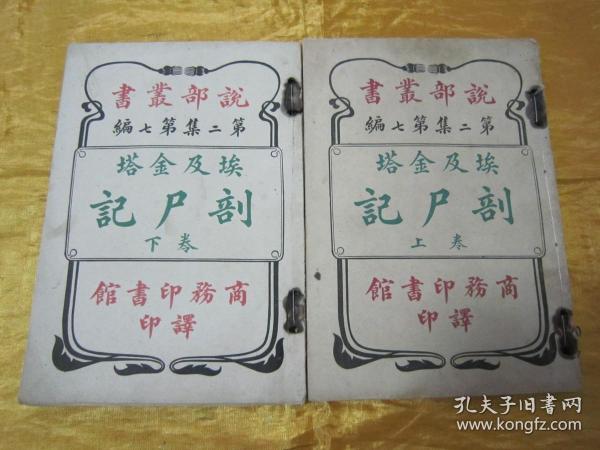 說部叢書
第二集第七編
埃及金塔
剖尸記
卷下
商務印書館
譯印
說部叢書
第二集第七編
埃及金塔
剖尸記
卷上
商務印書館
譯印
孔夫子旧书网
www.kongfz.com